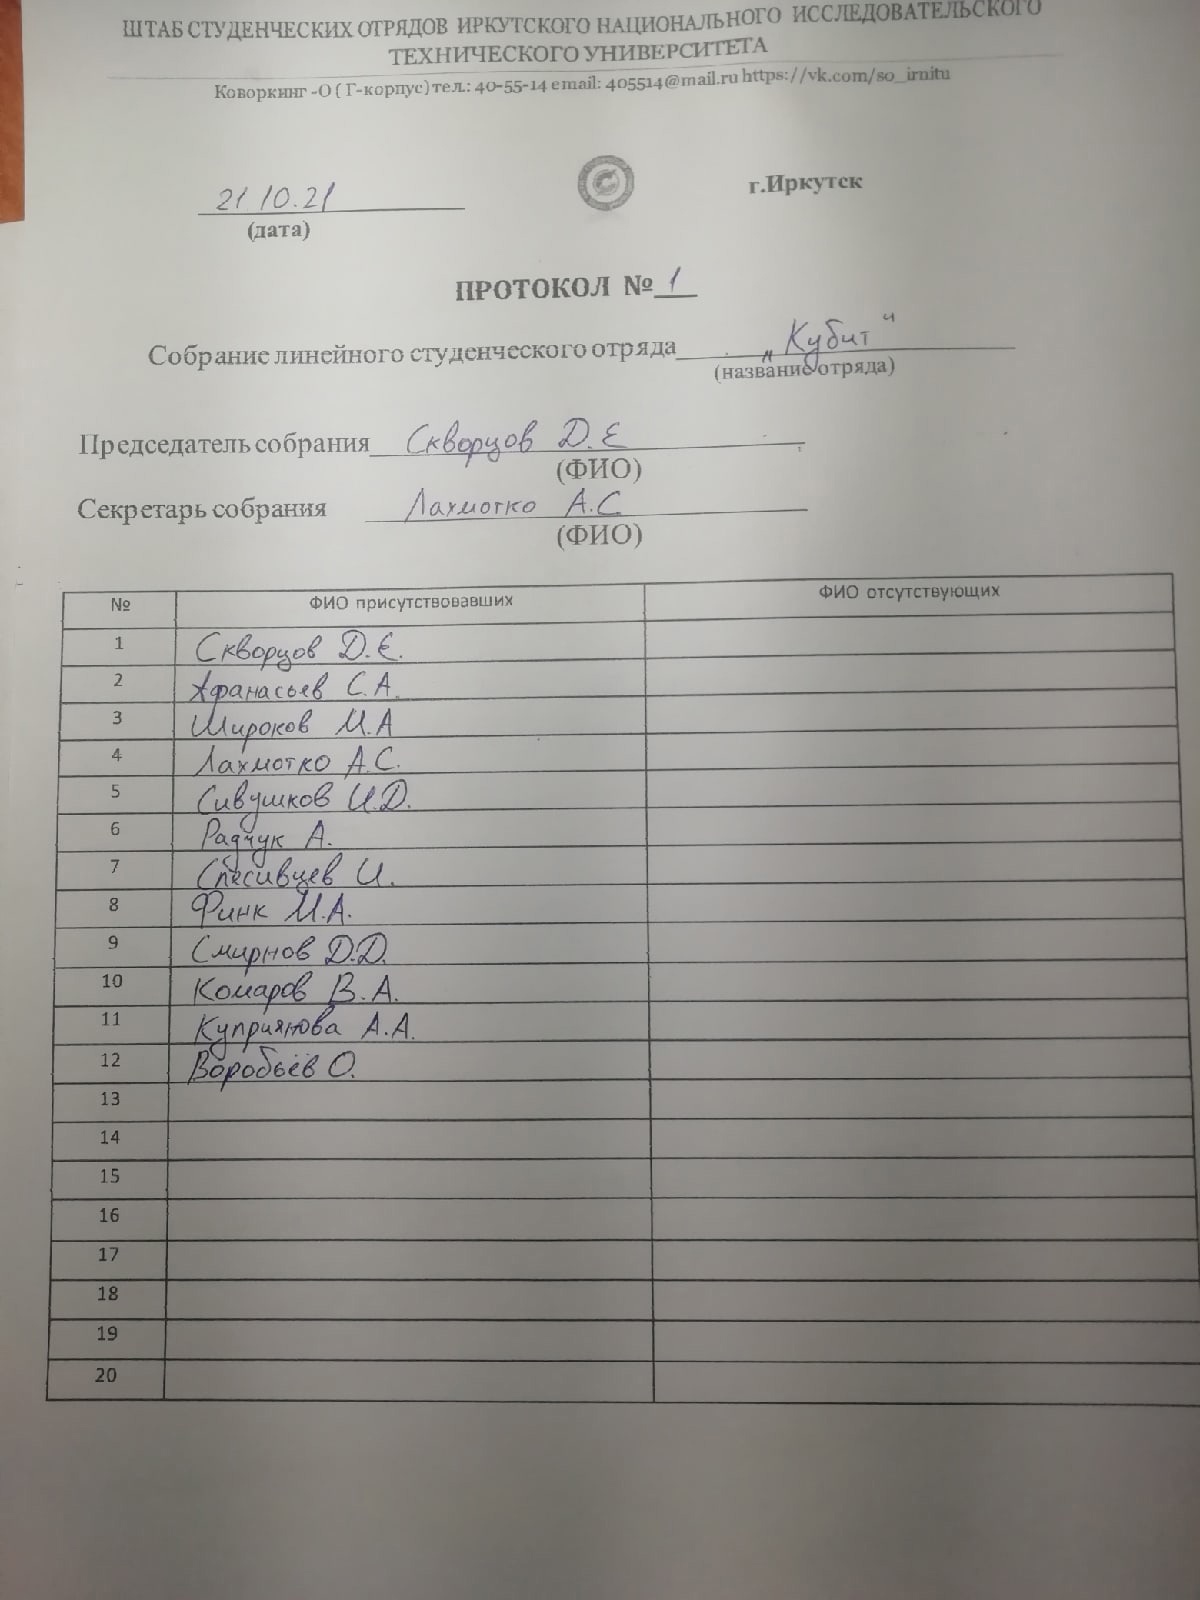 ШТАБ СТУДЕНЧЕСКИХ ОТРЯДОВ ИРКУТСКОГО НАЦИОНАЛЬНОГО ИССЛЕДОВАТЕЛЬСКОГО
ТЕХНИЧЕСКОГО УНИВЕРСИТЕТА
Коворкинг -О ( Г-корпус) тел.: 40-55-14 email: 405514@mail.ru https://vk.com/so_irnitu
21 10.21 г.Иркутск
(дата)
ПРОТОКОЛ № 1
Собрание линейного студенческого отряда „Кубит“
(название отряда)
Председатель собрания Скворцов Д.Е
(ФИО)
Секретарь собрания Лахмотко А.С.
(ФИО)
№ ФИО присутствовавших ФИО отсутствующих
1 Скворцов Д.Е.
2 Афанасьев С.А.
3 Широков М.А
4 Лахмотко А.С.
5 Сивушков И.Д.
6 Радчук А.
7 Спесивцев И.
8 Финк М.А.
9 Смирнов Д.Д.
10 Комаров В.А.
11 Куприянова А.А.
12 Воробьёв О.
13
14
15
16
17
18
19
20